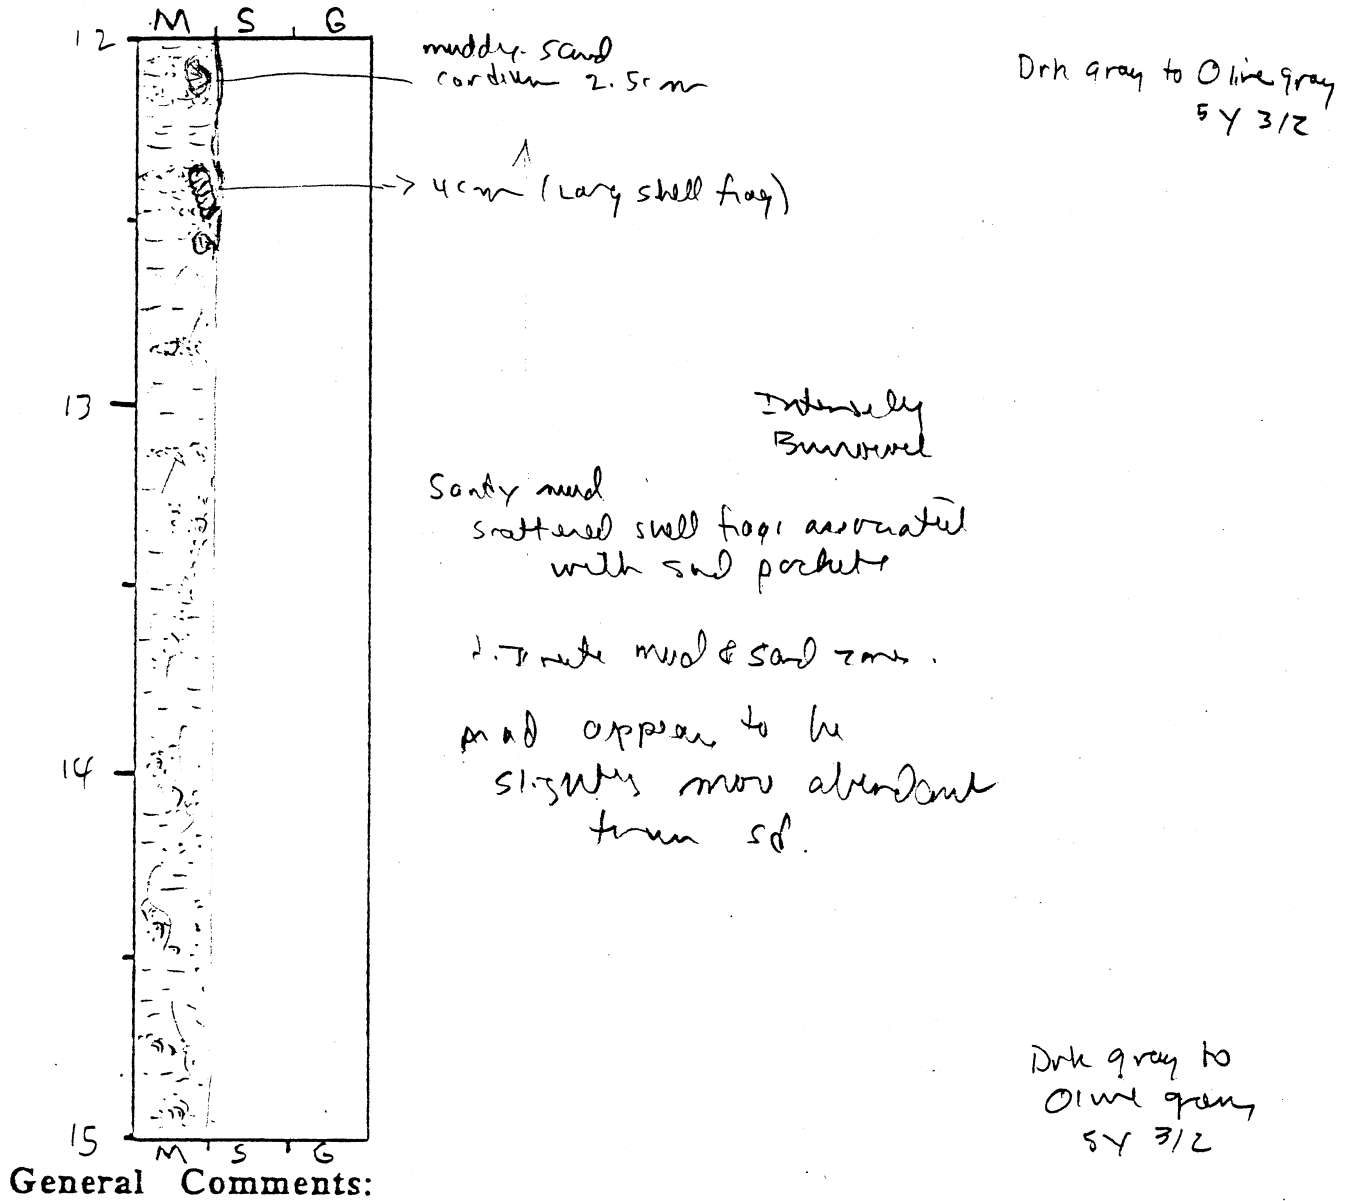 M S G
12
muddy sand
cordium 2.5cm
Drk gray to Olive gray
5Y 3/2
4cm (Larg shell frag)
13
Intensely
Burrowed
Sandy mud
scattered shell frags associated
with sand pockets
mud & sand zones.
mud appear to be
14
slightly more abundant
than sd.
Drk gray to
Olive gray
5Y 3/2
15
M S G
General Comments: